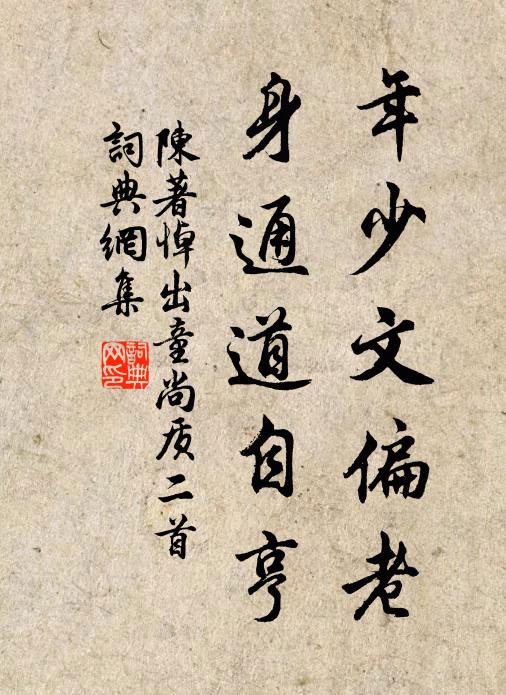 年少文偏老
身通道自亨
陳著悼出童尚质二首
詞典網集
詞典
网印